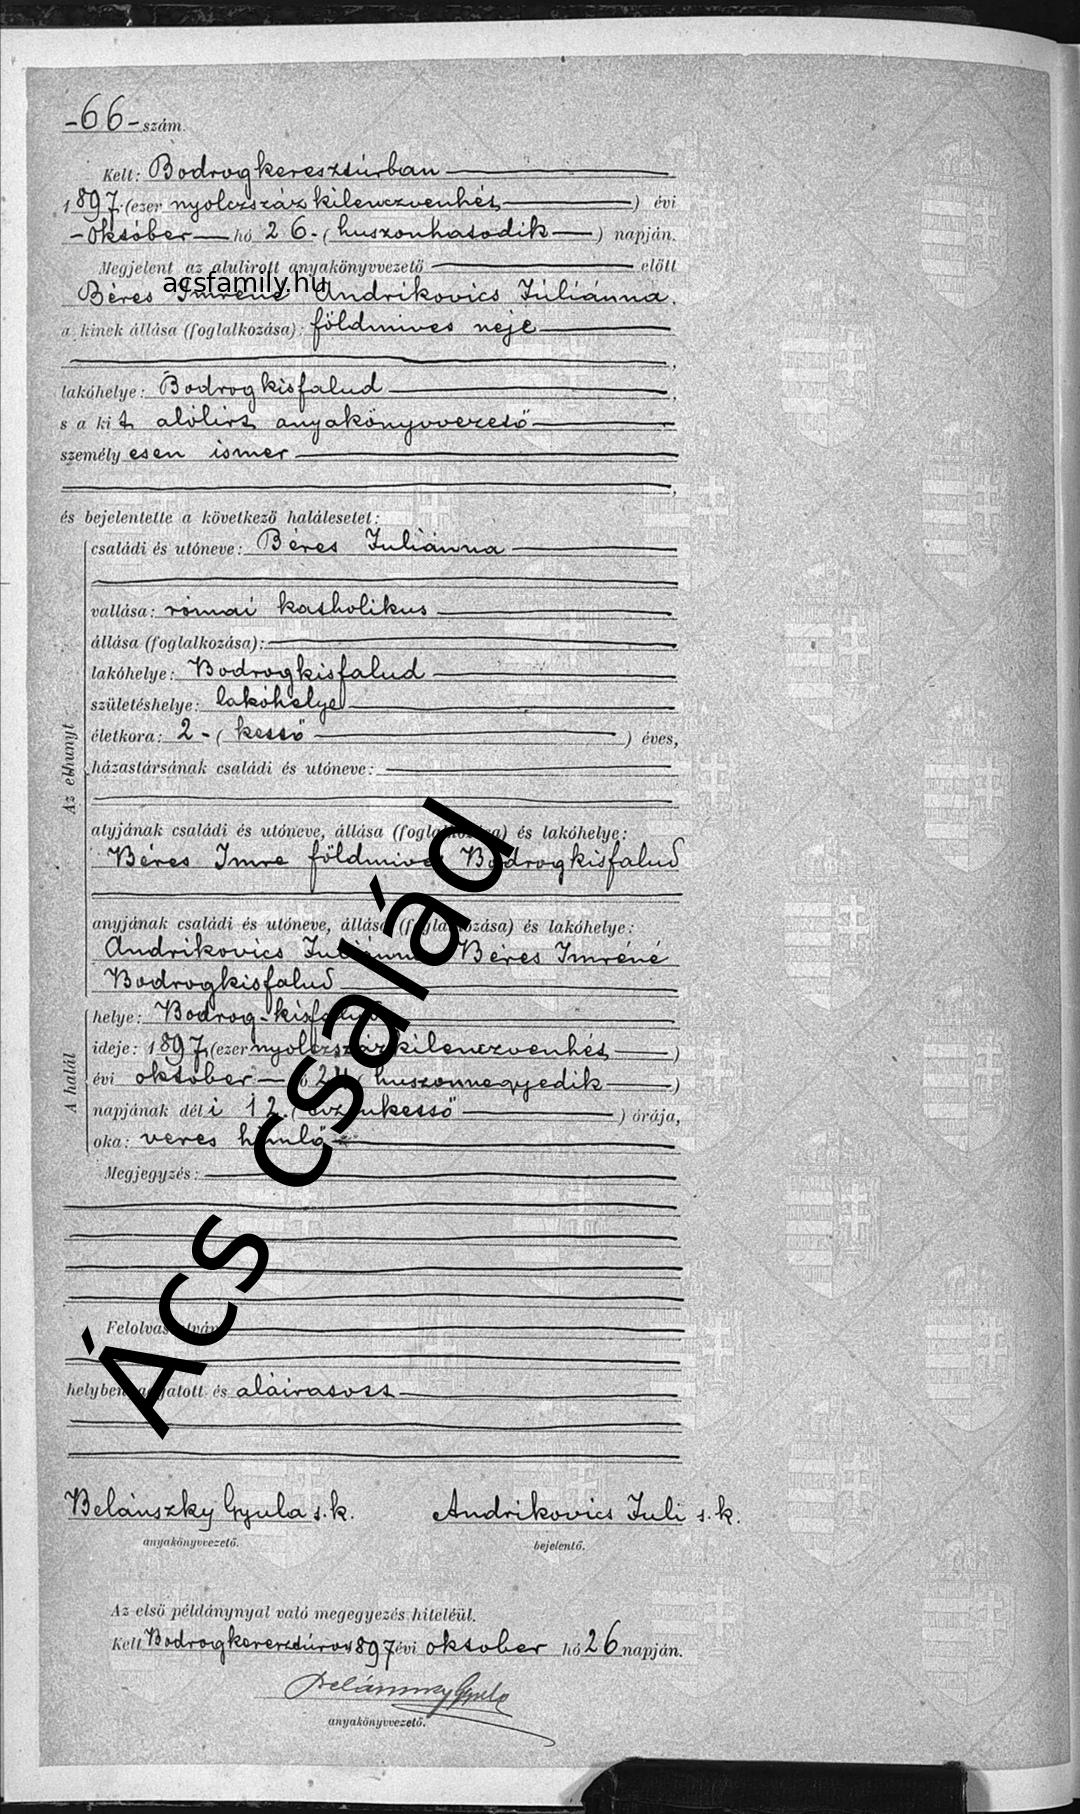 -66- szám.
Kelt: Bodrogkeresztúrban
1897. (ezer nyolczszáz kilenczvenhét) évi
- Október hó 26. (huszonhatodik) napján.
Megjelent az alulirott anyakönyvvezető előtt
acsfamily.hu
Béres Imréné Andrikovics Júliánna,
a kinek állása (foglalkozása): földmives neje
,
lakóhelye: Bodrogkisfalud,
s a kit alólirt anyakönyvvezető
személyesen ismer
,
és bejelentette a következő halálesetet:
Az elhunyt
családi és utóneve: Béres Juliánna
vallása: római katholikus
állása (foglalkozása):
lakóhelye: Bodrogkisfalud
születéshelye: lakóhelye
életkora: 2 - (kettő) éves,
házastársának családi és utóneve:
atyjának családi és utóneve, állása (foglalkozása) és lakóhelye:
Béres Imre földmives Bodrogkisfalud
anyjának családi és utóneve, állása (foglalkozása) és lakóhelye:
Andrikovics Juliánna Béres Imréné
Bodrogkisfalud
A halál
helye: Bodrog-kisfalud
ideje: 1897. (ezer nyolczszáz kilenczvenhét)
évi október hó 24 (huszonnegyedik)
napjának déli 12. (tizenkettő) órája,
oka: veres himlő
Megjegyzés:
Ács család
Felolvastatván
helybenhagyatott és aláiratott
Belánszky Gyula s.k. Andrikovics Juli s.k.
anyakönyvvezető. bejelentő.
Az első példánynyal való megegyezés hiteléül.
Kelt Bodrogkereszturon 897 évi oktober hó 26 napján.
Belánszky Gyula
anyakönyvvezető.